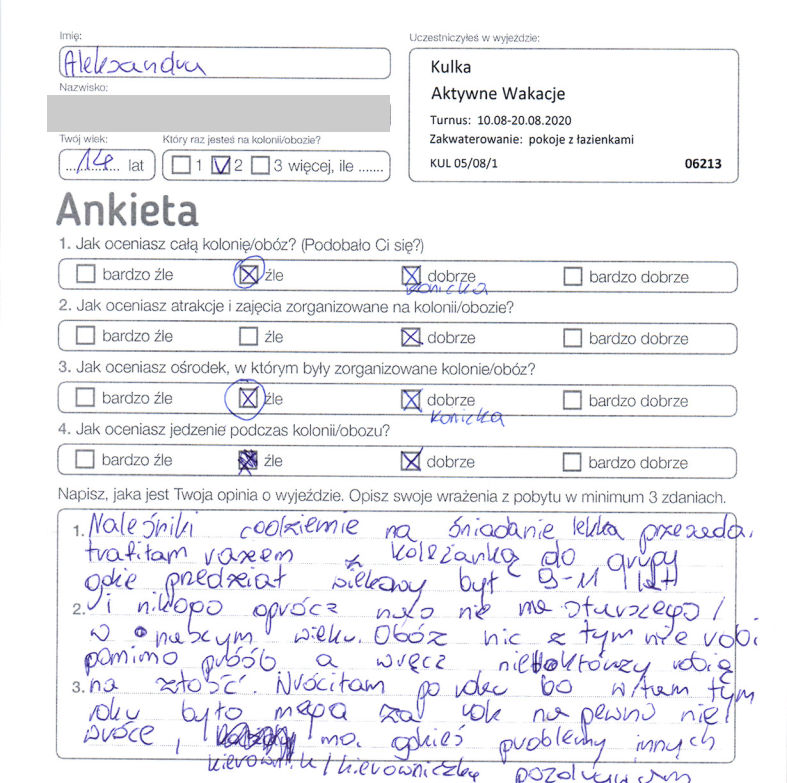 Imię:
Aleksandra
Nazwisko:
Twój wiek:
14 lat
Który raz jesteś na kolonii/obozie?
1 2 3 więcej, ile .......
Uczestniczyłeś w wyjeździe:
Kulka
Aktywne Wakacje
Turnus: 10.08-20.08.2020
Zakwaterowanie: pokoje z łazienkami
KUL 05/08/1 06213
Ankieta
1. Jak oceniasz całą kolonię/obóz? (Podobało Ci się?)
bardzo źle źle dobrze bardzo dobrze
konicka
2. Jak oceniasz atrakcje i zajęcia zorganizowane na kolonii/obozie?
bardzo źle źle dobrze bardzo dobrze
3. Jak oceniasz ośrodek, w którym były zorganizowane kolonie/obóz?
bardzo źle źle dobrze bardzo dobrze
konicka
4. Jak oceniasz jedzenie podczas kolonii/obozu?
bardzo źle źle dobrze bardzo dobrze
Napisz, jaka jest Twoja opinia o wyjeździe. Opisz swoje wrażenia z pobytu w minimum 3 zdaniach.
1. Naleśniki codziennie na śniadanie lekka przesada,
trafiłam razem z koleżanką do grupy
gdzie przedział wiekowy był 9-11 lat
2. i nikogo oprócz nas nie ma starszego /
w naszym wieku. Obóz nic z tym nie robi
pomimo próśb, a wręcz niektórzy robią
3. na złość. Wróciłam po roku bo w tam tym
roku było mega za rok na pewno nie
wrócę, ma gdzieś problemy innych
kierownik / kierowniczka